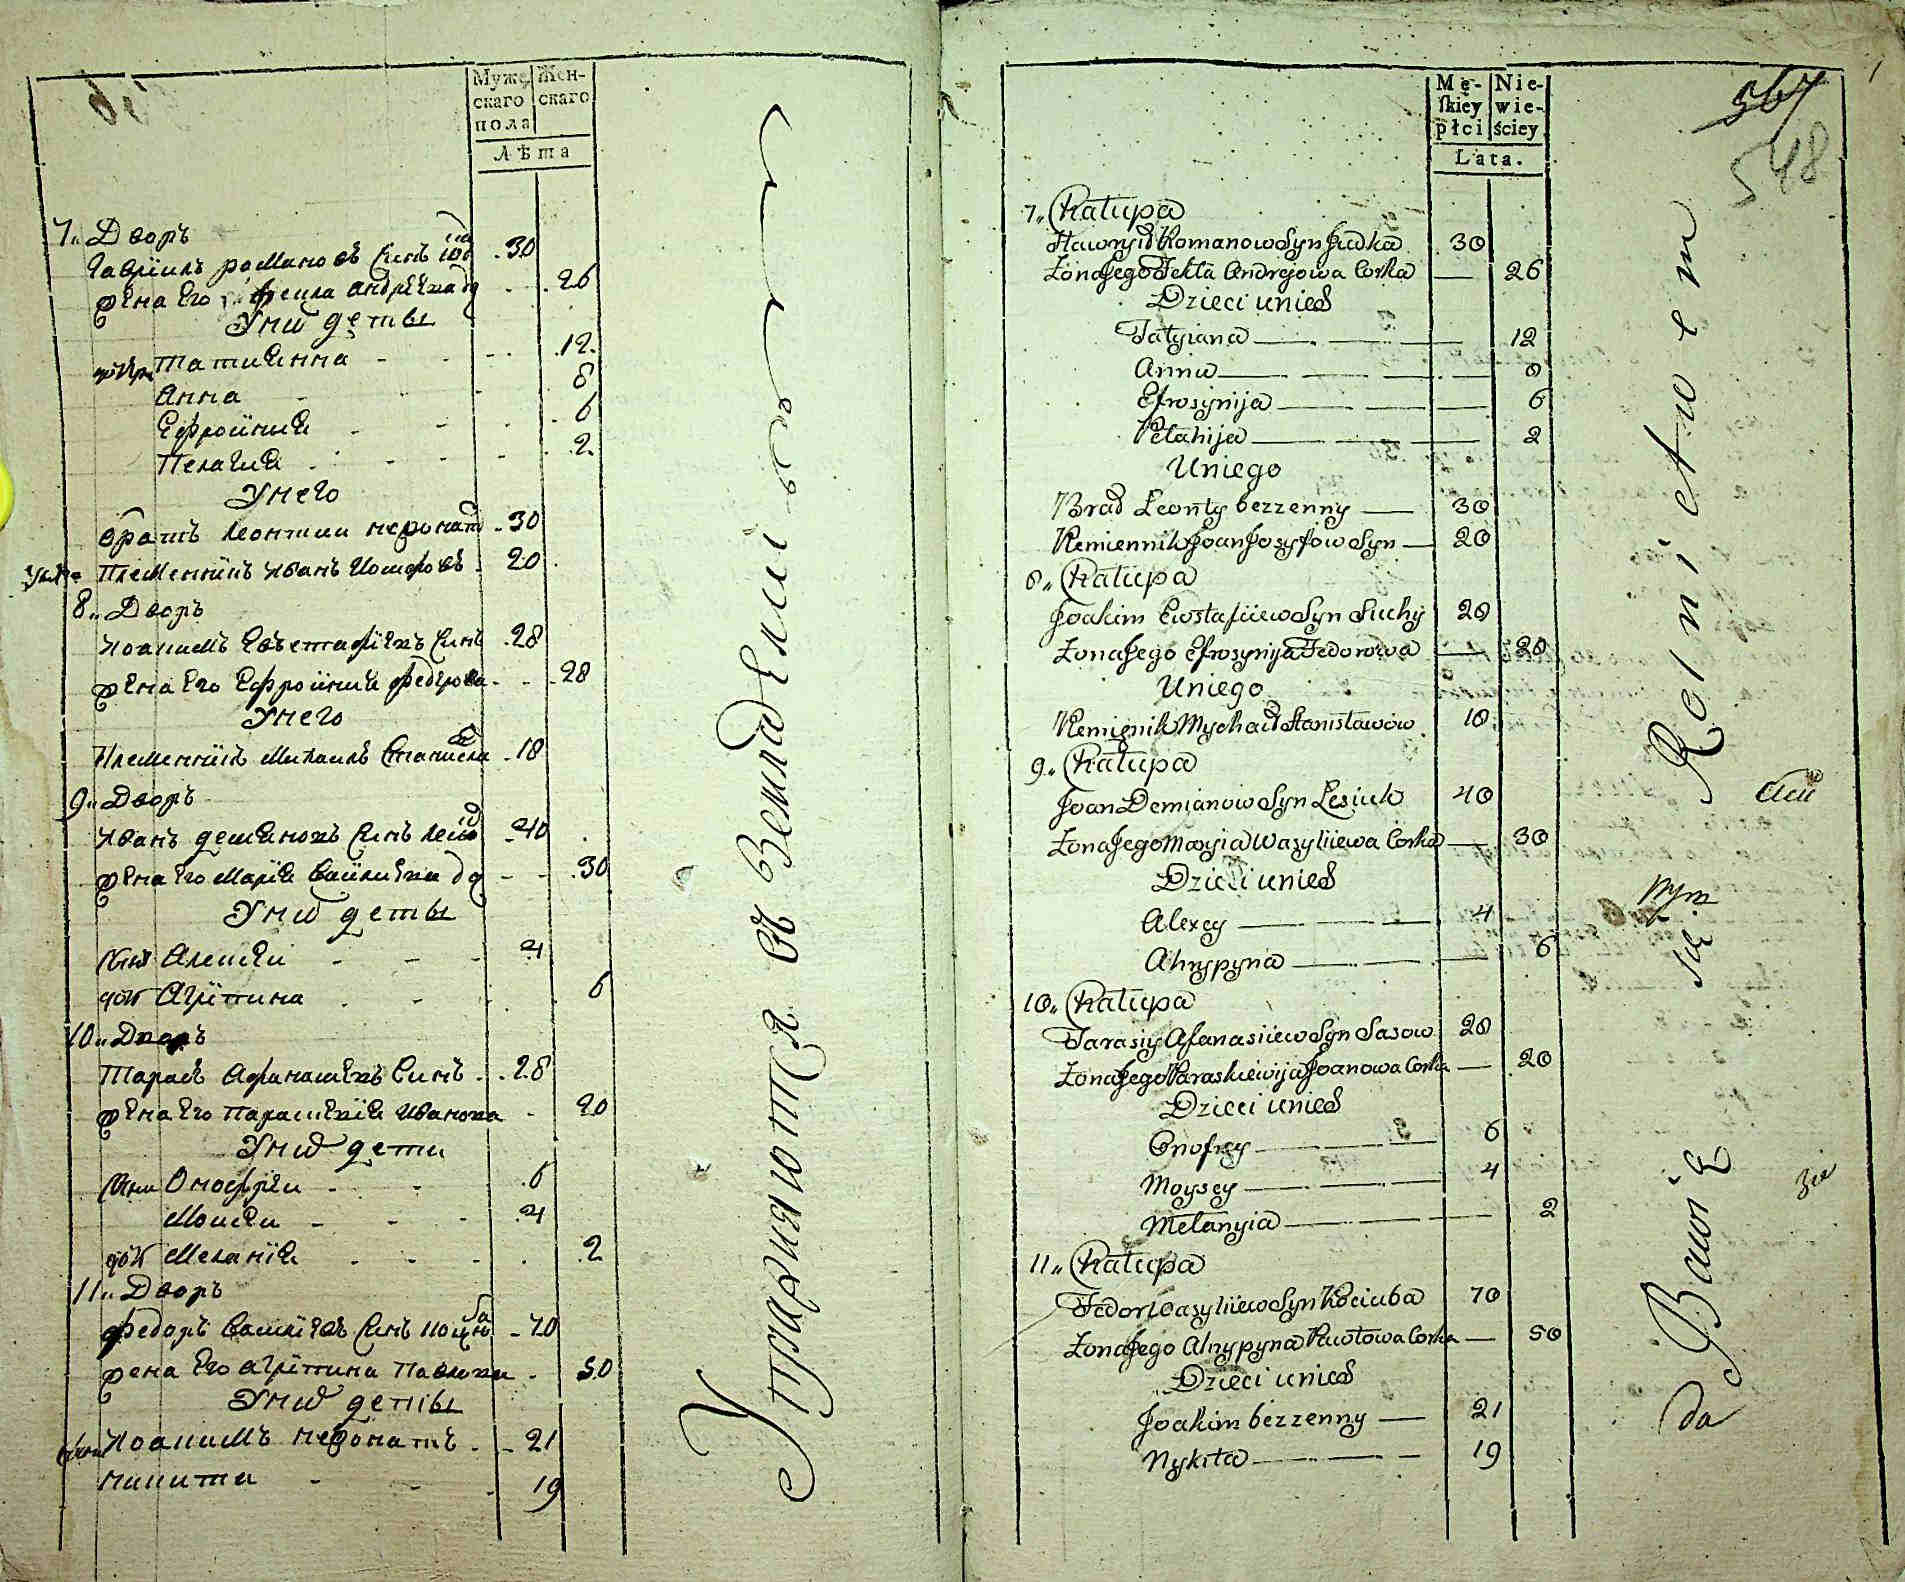 Муже Жен-
скаго скаго
пола
Лѣта
7„ Дворъ
Гавріилъ романовъ Синъ 30
жена Его Фекла андрѣева 26
Унихъ деты
Татиянна 12
Анна 8
Ефросиния 6
Пелагия 2
Унего
братъ Леонтии неженатъ 30
Племенникъ Иванъ Иосифовъ 20
8„ Дворъ
Иоакимъ Евъстафиевъ Синъ 28
жена Его Ефросиния Федорова 28
Унего
Племенникъ Михаилъ Станисла 18
9„ Дворъ
Иванъ демяновъ Синъ 40
жена Его Мария Василиева 30
Унихъ деты
Алексеи 4
Агрипина 6
10„ Дворъ
Тарасъ Афанасиевъ Синъ 28
жена Его Парасъкевия Иванова 20
Унихъ дети
Онофреи 6
Моисеи 4
Мелания 2
11„ Дворъ
Федоръ Василиевъ Синъ 70
жена Его агрипина Павлова 50
Унихъ деты
Иоакимъ неженатъ 21
никита 19
Упражняются въ Земледелии
Mę- Nie-
skiey wie-
płci ściey
Lata.
567
548
7„ Chałupa
Hawryił Romanow Syn Judka 30
Zona Jego Tekla Andrejowa Corka 26
Dzieci unich
Tatyiana 12
Anna 8
Efrosynija 6
Pelahija 2
Uniego
Brad Leonty bezzenny 30
Plemiennik Joan Josyfow Syn 20
8„ Chałupa
Joakim Ewstafiiew Syn Suchy 28
Zona Jego Efrosynija Fedorowa 28
Uniego
Plemienik Mychaił Stanisławów 18
9„ Chałupa
Joan Demianow Syn Lesiuk 40
Zona Jego Maryia Wasyliiewa Corka 30
Dzieci unich
Alexey 4
Ahrypyna 6
10„ Chałupa
Tarasiy Afanasiiew Syn Sasow 28
Zona Jego Paraskiewija Joanowa Corka 20
Dzieci unich
Onofrey 6
Moysey 4
Melanyia 2
11„ Chałupa
Fedor Wasyliiew Syn Kociuba 70
Zona Jego Ahrypyna Pawłowa Corka 50
Dzieci unich
Joakim bezzenny 21
Nykita 19
Bawią się Rolnictwem